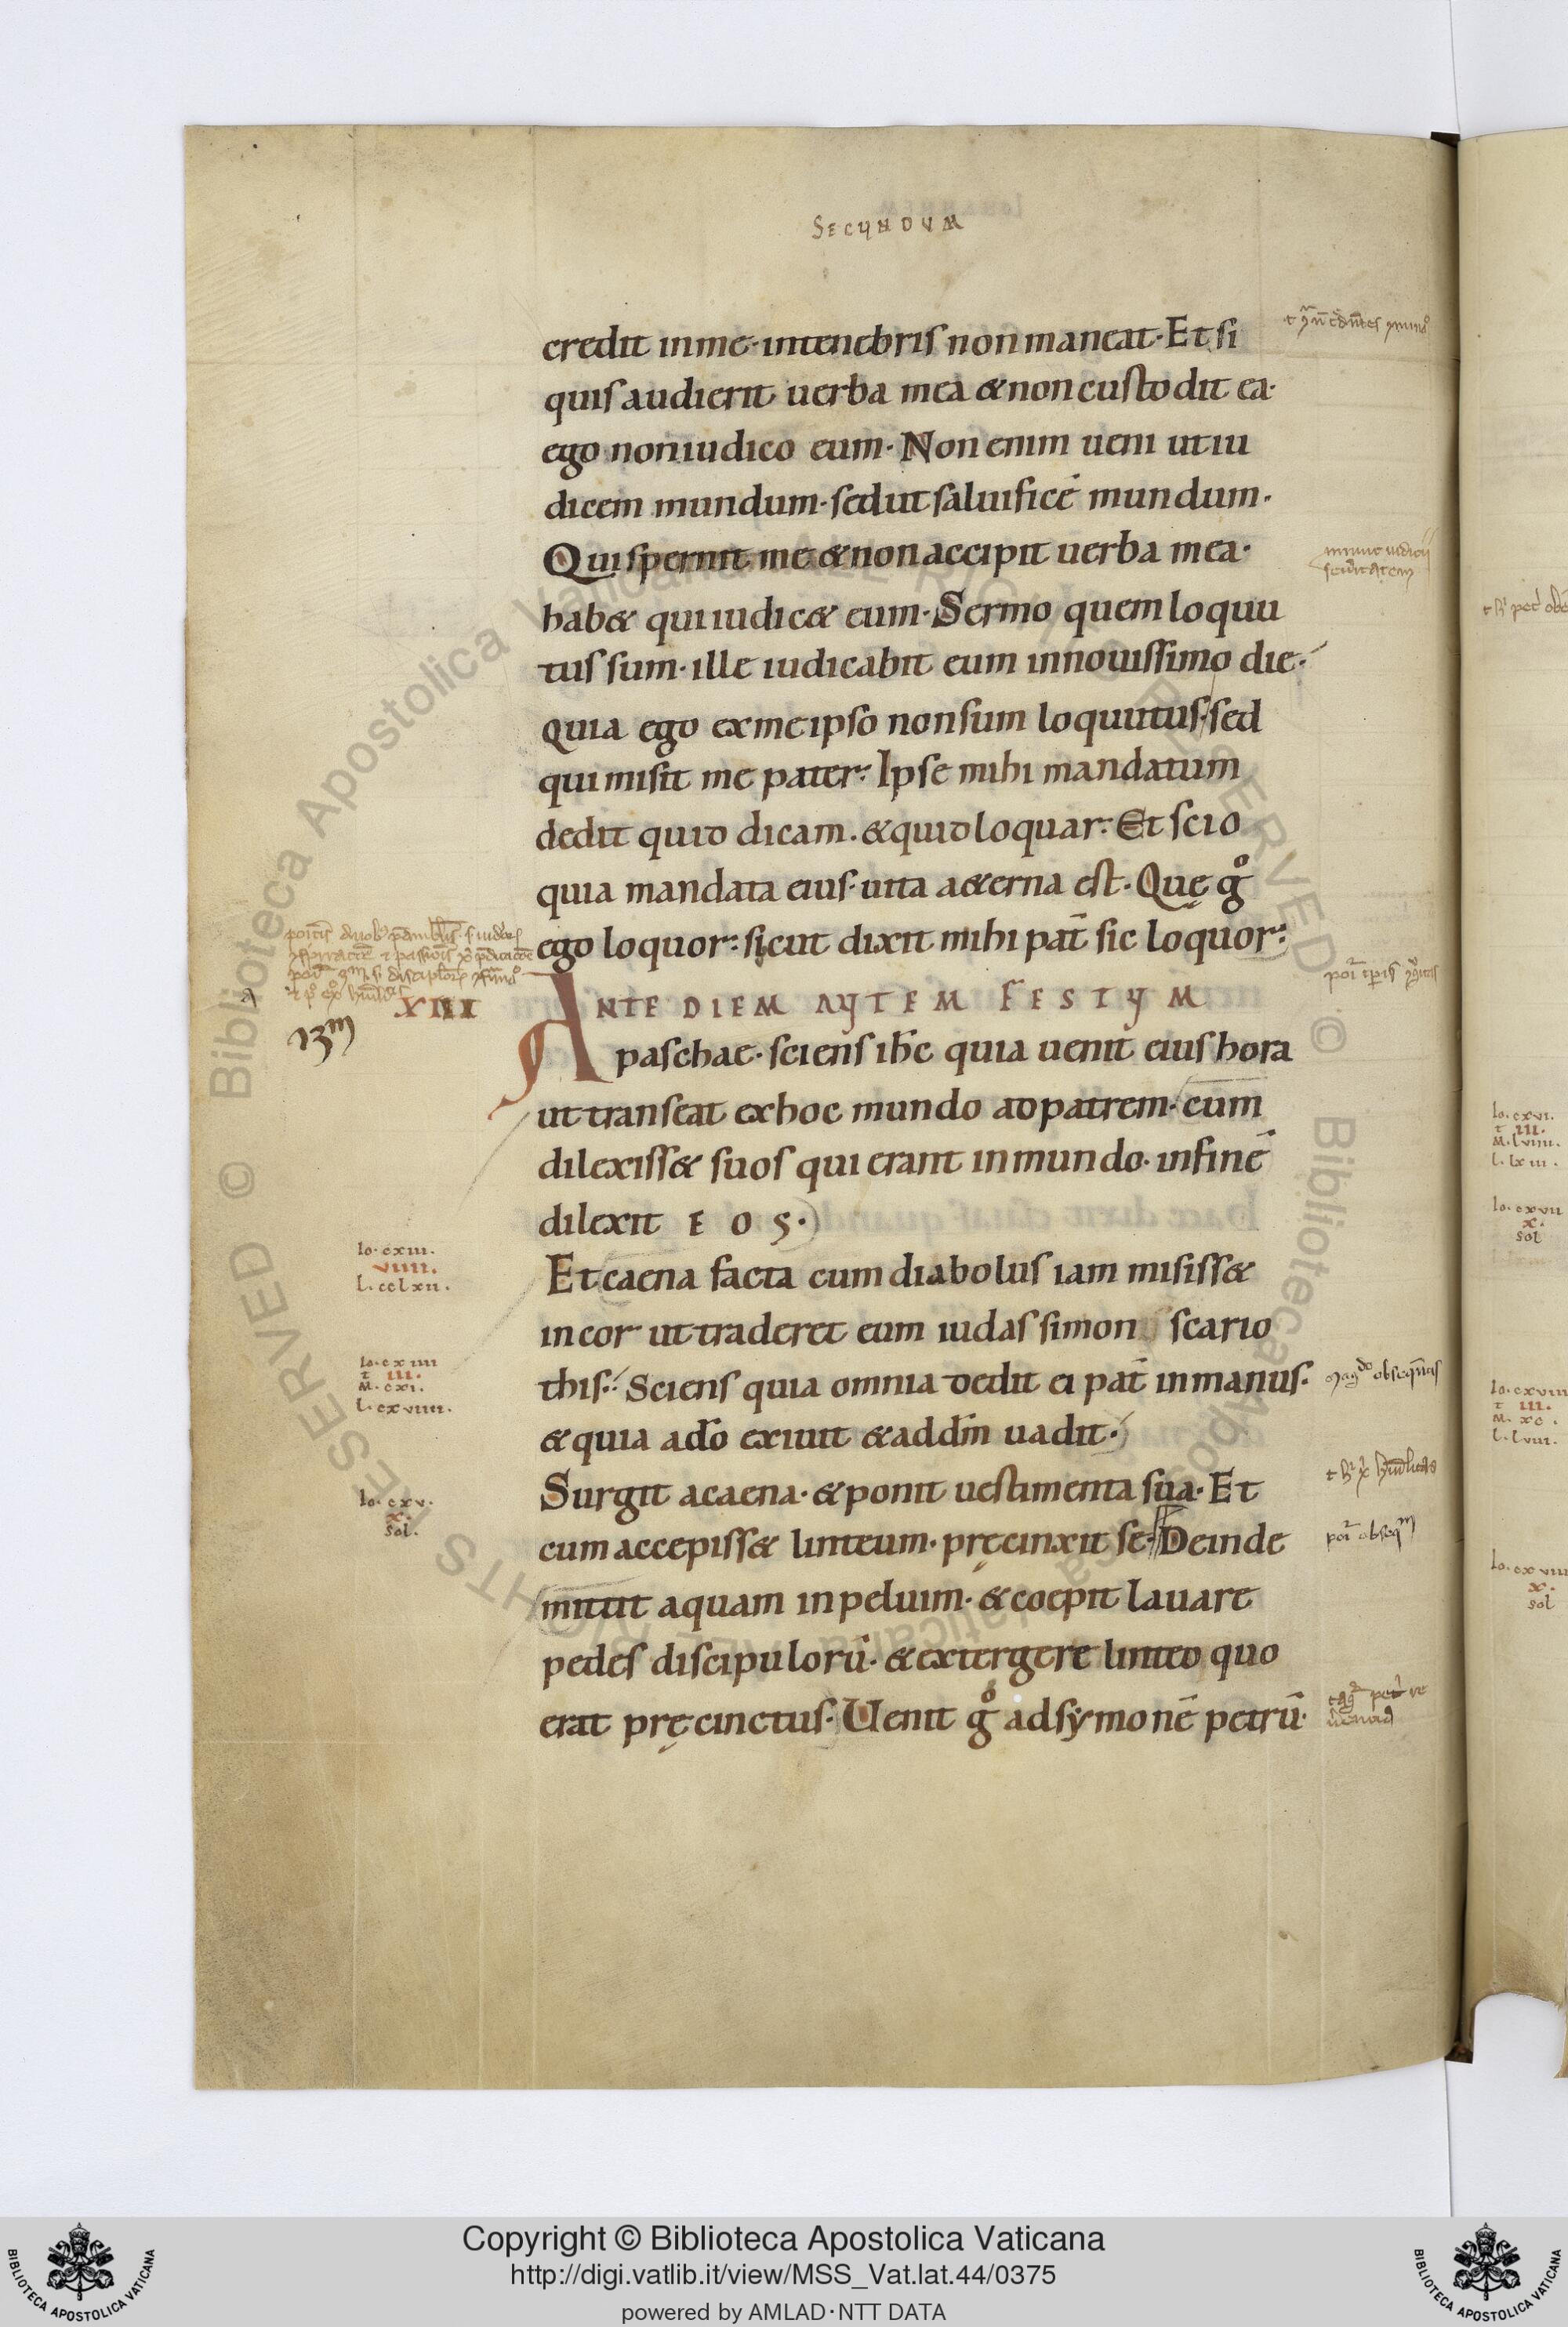 SECUNDUM
credit in me· in tenebris non maneat· Et si
quis audierit uerba mea & non custodit ea·
ego non iudico eum· Non enim ueni ut iu
dicem mundum· sed ut saluificē mundum·
Qui spernit me & non accipit uerba mea·
hab& qui iudic& eum· Sermo quem loquu
tus sum· ille iudicabit eum in nouissimo die·
Quia ego ex me ipso non sum loquutus· sed
qui misit me pater· Ipse mihi mandatum
dedit quid dicam· & quid loquar· Et scio
quia mandata eius· uita a&erna est· Quę gͦ
ego loquor· sicut dixit mihi pat̄ sic loquor·
XIII
13m
ANTE DIEM AUTEM FESTUM
paschae· sciens ihc̄ quia uenit eius hora
ut transeat ex hoc mundo ad patrem· cum
dilexiss& suos qui erant in mundo· in finē
dilexit EOS·
Io· cxiii·
viiii·
L· cclxii·
Et caena facta cum diabolus iam misiss&
in cor ut traderet eum iudas simon scario
Io· cxiiii
t iii·
M· cxi·
L· cxviiii·
this· Sciens quia omnia dedit ei pat̄ in manus·
& quia a dō exiuit & ad dm̄ uadit·
Io· cxv·
x·
sol·
Surgit a caena· & ponit uestimenta sua· Et
cum accepiss& linteum· pręcinxit se· Deinde
mittit aquam in peluim· & coepit lauare
pedes discipulorū· & extergere linteo quo
erat pręcinctus· Uenit gͦ ad symonē petrū·
Io· cxvi·
t iii·
M· lviiii·
L· lxiii·
Io· cxvii
x·
sol
Io· cxviii
t iii·
M· xc·
L· lviii·
Io· cxviiii
x·
sol
© Biblioteca Apostolica Vaticana ALL RIGHTS RESERVED
Copyright © Biblioteca Apostolica Vaticana
http://digi.vatlib.it/view/MSS_Vat.lat.44/0375
powered by AMLAD·NTT DATA
BIBLIOTECA APOSTOLICA VATICANA
BIBLIOTECA APOSTOLICA VATICANA